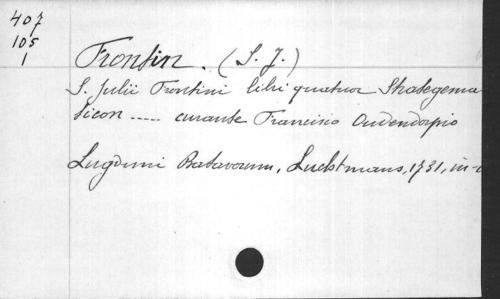 407
105
1
Frontin. (S. J.)
S. Julii Frontini libri quatuor Strategema
ticon ..... curante Francisio Oudendorpio
Lugduni Batavorum, Luchtmans, 1731, in-